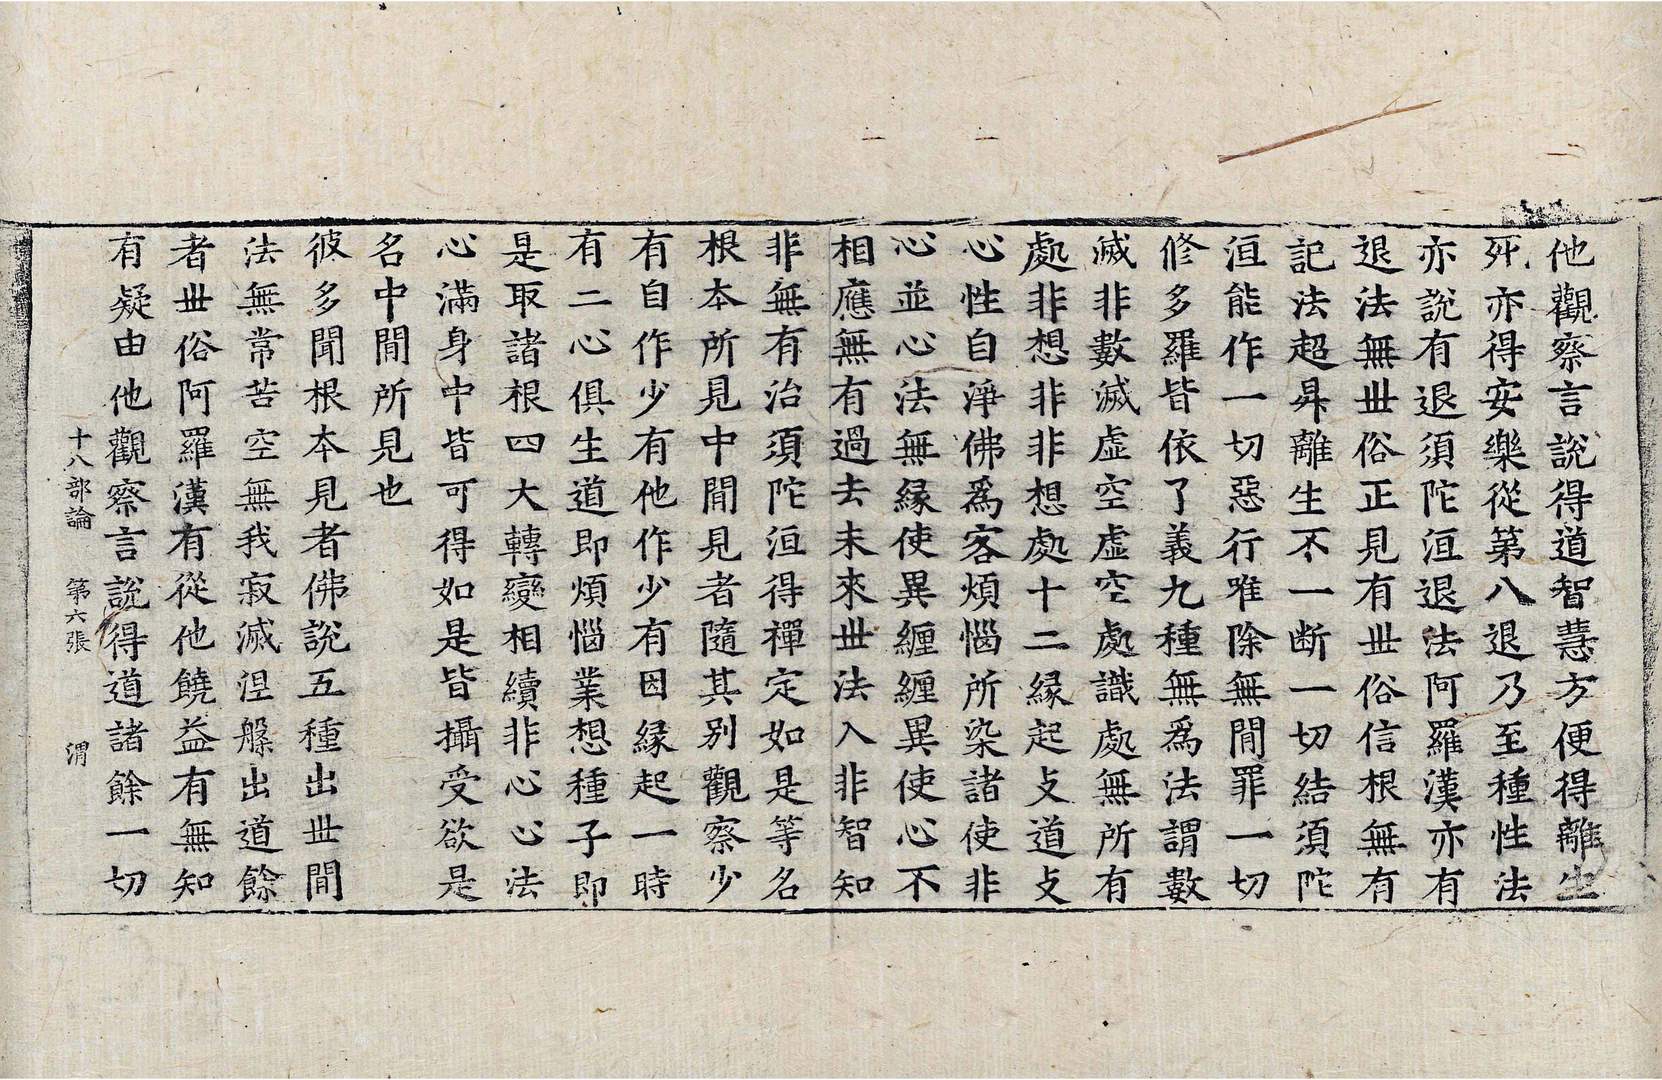 他觀察言說得道智慧方便得離生
死亦得安樂從第八退乃至種性法
亦說有退須陀洹退法阿羅漢亦有
退法無丗俗正見有丗俗信根無有
記法超昇離生不一断一切結須陀
洹能作一切惡行唯除無間罪一切
修多羅皆依了義九種無為法謂數
滅非數滅虛空虛空處識處無所有
處非想非非想處十二緣起攴道攴
心性自淨佛爲客煩惱所染諸使非
心並心法無緣使異纏纏異使心不
相應無有過去未來丗法入非智知
非無有治須陀洹得禪定如是等名
根本所見中間見者隨其别觀察少
有自作少有他作少有因緣起一時
有二心俱生道即煩惱業想種子即
是取諸根四大轉變相續非心心法
心滿身中皆可得如是皆攝受欲是
名中間所見也
彼多聞根本見者佛說五種出丗間
法無常苦空無我寂滅涅槃出道餘
者丗俗阿羅漢有從他饒益有無知
有疑由他觀察言說得道諸餘一切
十八部論　第六張　渭